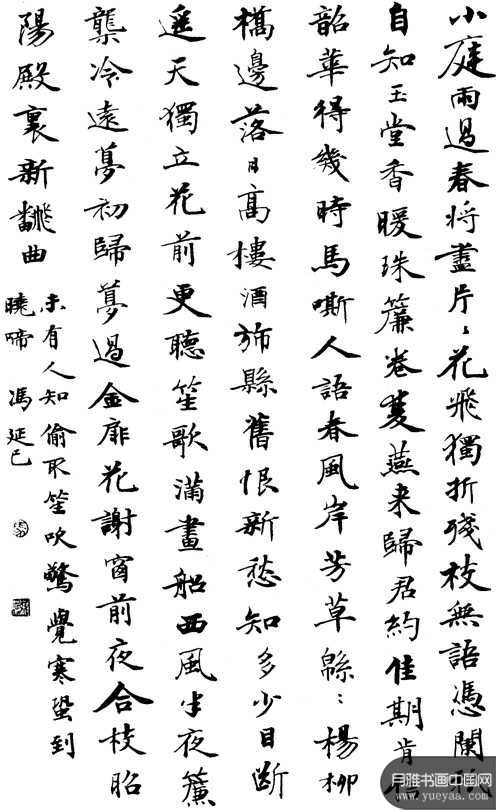 小庭雨過春將盡片〻花飛獨折殘枝無語憑闌祇
自知玉堂香暖珠簾卷雙燕来歸君約佳期肯信
韶華得幾時馬嘶人語春風岸芳草緜〻楊柳
橋邊落日高樓酒斾懸舊恨新愁知多少目斷
遥天獨立花前更聽笙歌滿畫船西風半夜簾
櫳冷遠夢初歸夢過金扉花謝窗前夜合枝昭
陽殿裏新飜曲
未有人知偷取笙吹驚覺寒蛩到
曉啼 馮延巳
月雅书画中国网
www.yueyaa.com